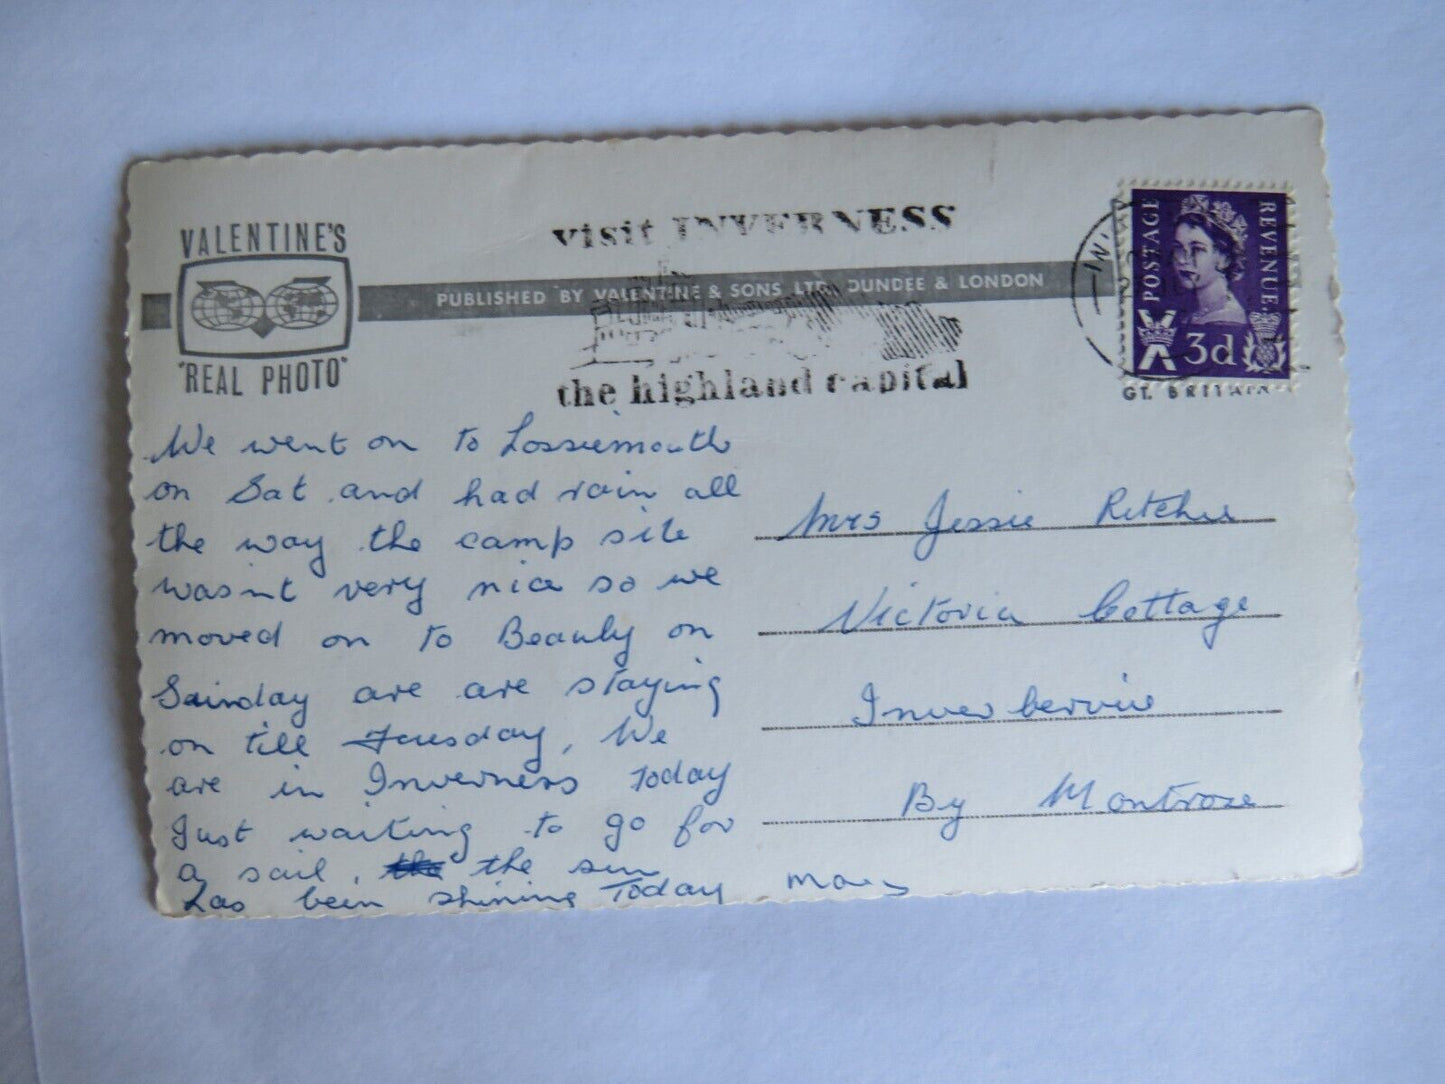 VALENTINE'S
"REAL PHOTO"
visit INVERNESS
PUBLISHED BY VALENTINE & SONS LTD. DUNDEE & LONDON
the highland capital
POSTAGE
REVENUE
3d
GT. BRITAIN
We went on to Lossiemouth
on Sat and had rain all
the way the camp site
wasint very nice so we
moved on to Beauly on
Sunday are are staying
on till Tuesday, We
are in Inverness Today
Just waiting to go for
a sail, the the sun
has been shining Today
Mrs Jessie Ritchie
Victoria Cottage
Inverbervie
By Montrose